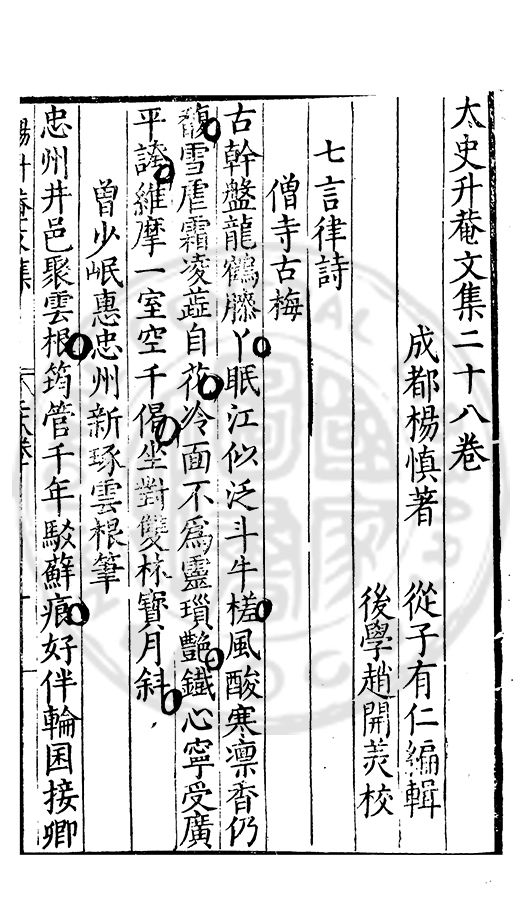 太史升菴文集二十八卷
成都楊慎著 從子有仁編輯
後學趙開美校
七言律詩
僧寺古梅
古幹盤龍鶴膝丫岷江似泛斗牛槎風酸寒凛香仍
馥雪虐霜凌蕋自花冷面不爲靈瑣艶鐵心寧受廣
平誇維摩一室空千偈坐對雙林寳月斜
曾少岷惠忠州新琢雲根筆
忠州井邑聚雲根筠管千年駁蘚痕好伴輪囷接卿